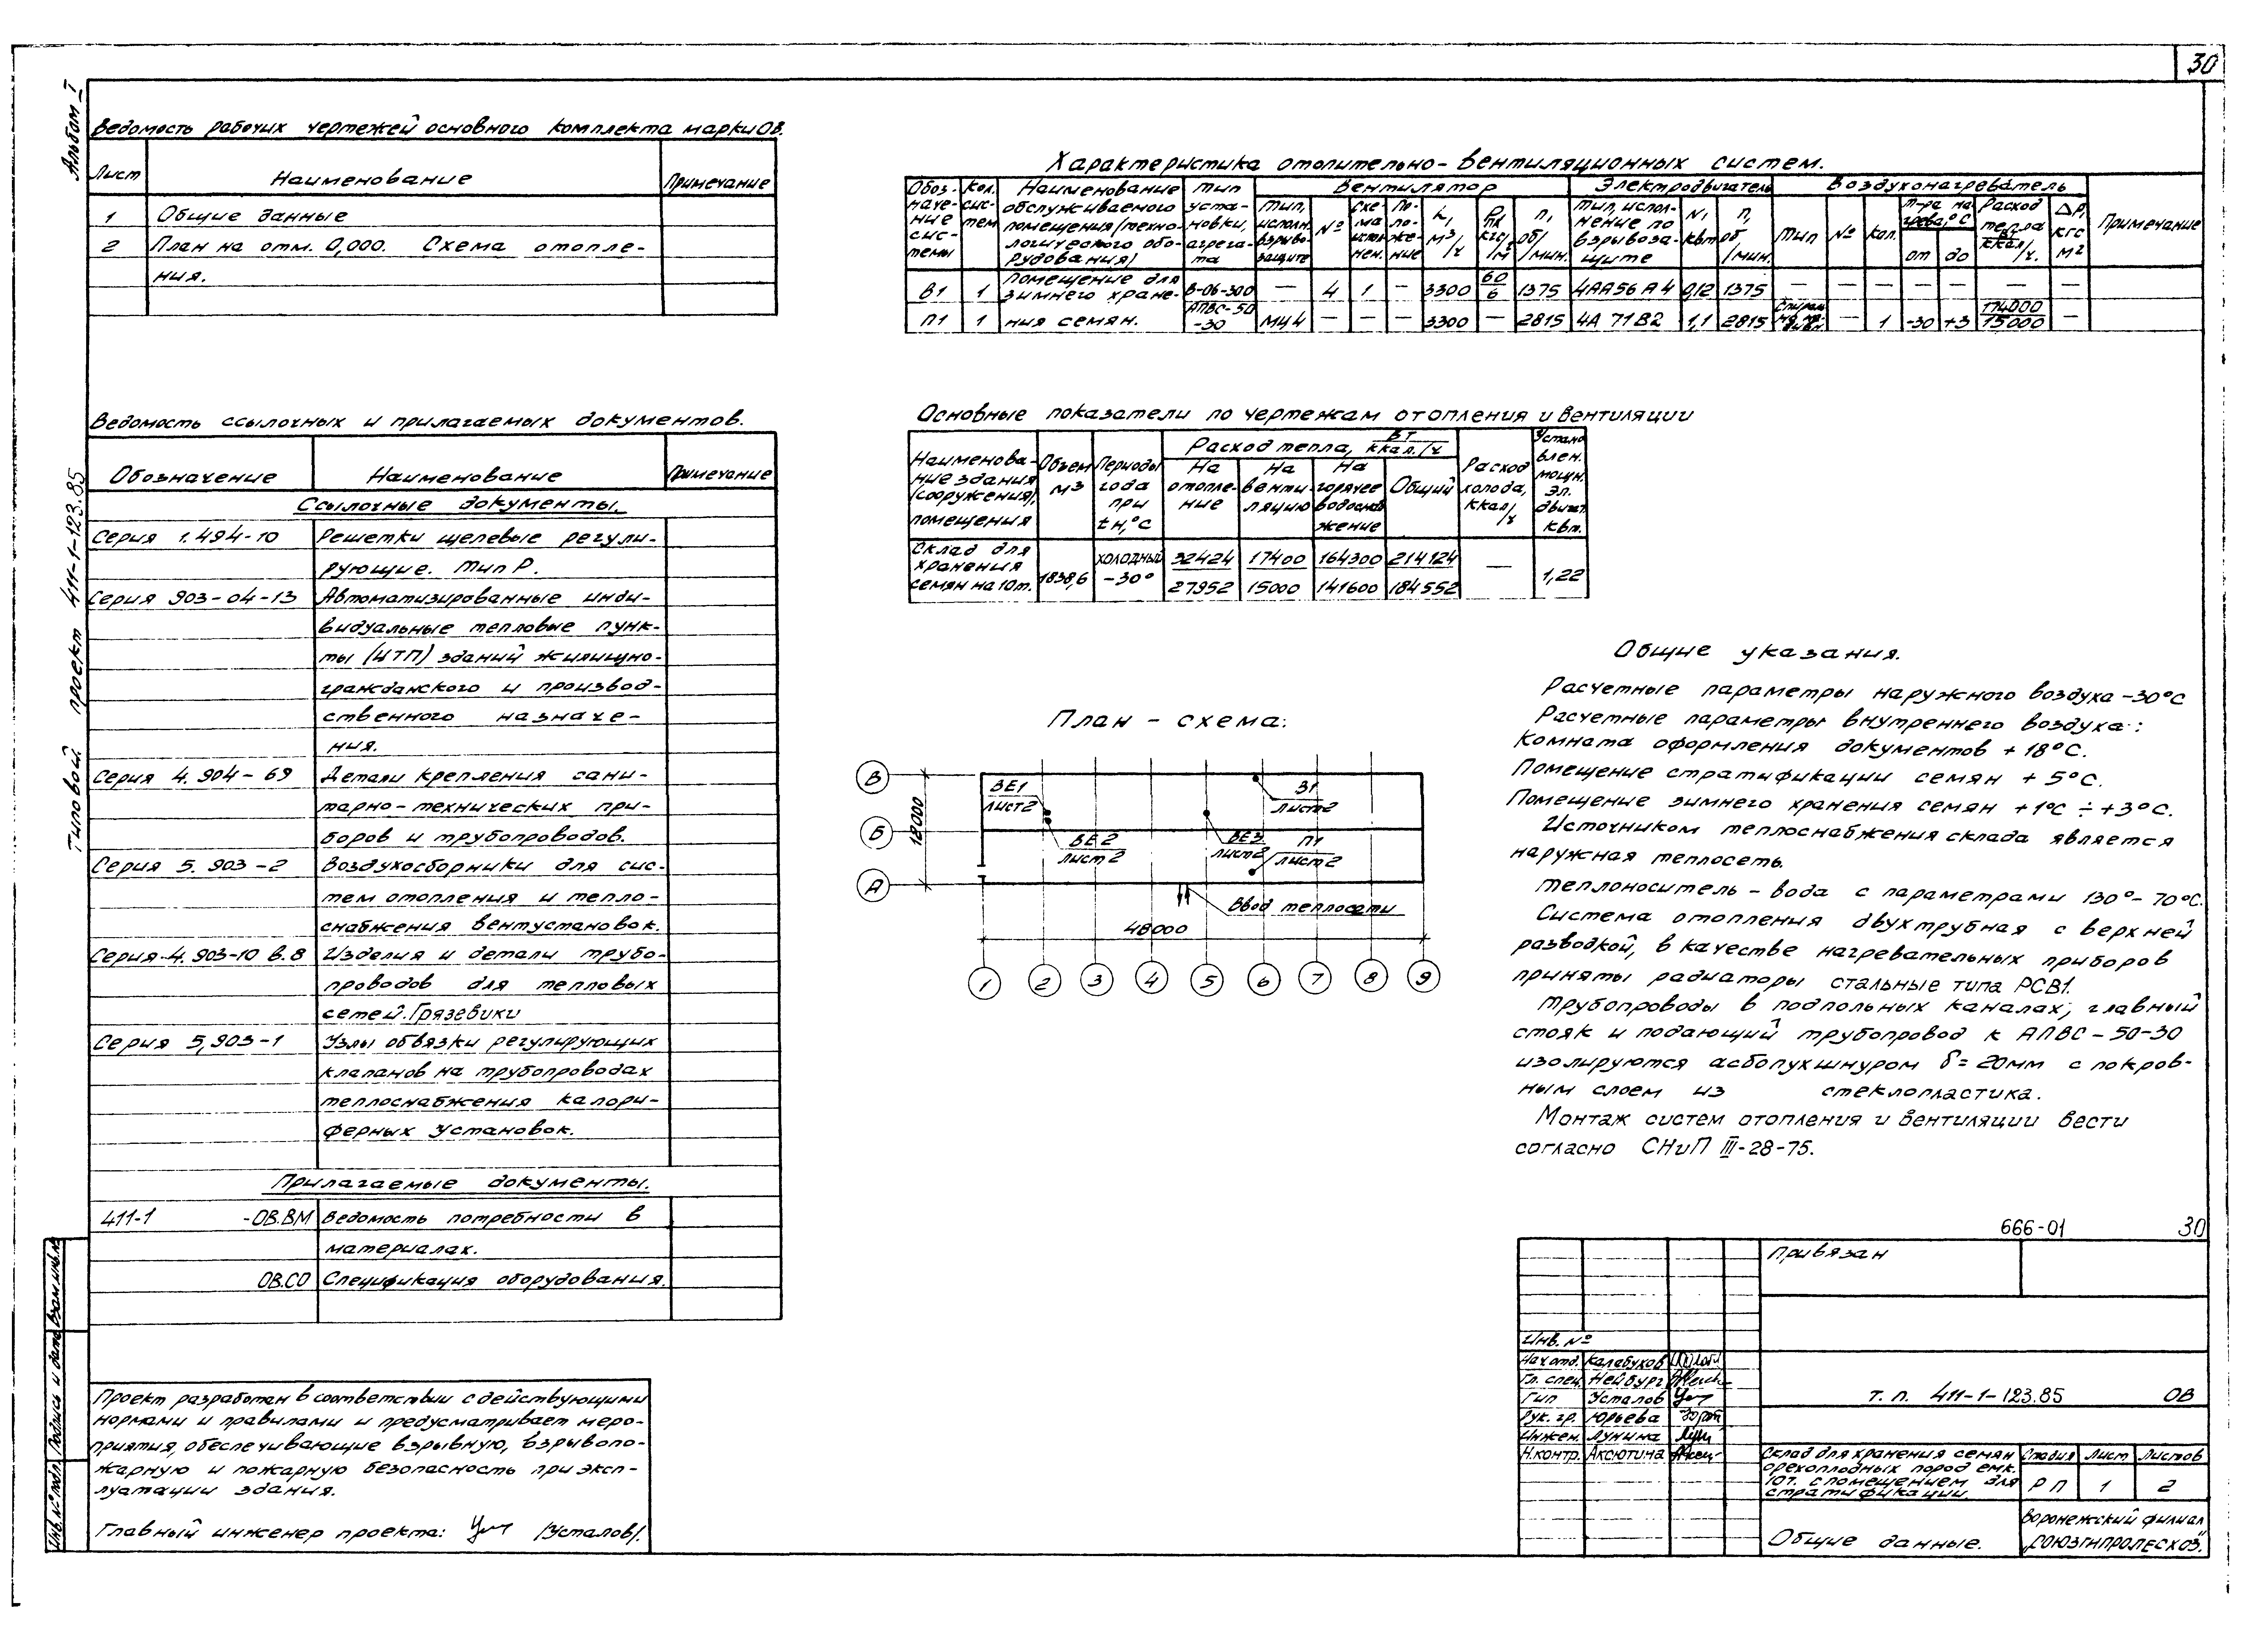 30
Альбом I
Типовой проект 411-1-123.85
Ведомость рабочих чертежей основного комплекта марки ОВ.
Лист Наименование Примечание
1 Общие данные
2 План на отм. 0,000. Схема отопле-
ния.
Ведомость ссылочных и прилагаемых документов.
Обозначение Наименование Примечание
Ссылочные документы.
Серия 1.494-10 Решетки щелевые регули-
рующие. Тип Р.
Серия 903-04-13 Автоматизированные инди-
видуальные тепловые пунк-
ты (ИТП) зданий жилищно-
гражданского и производ-
ственного назначе-
ния.
Серия 4.904-69 Детали крепления сани-
тарно-технических при-
боров и трубопроводов.
Серия 5.903-2 Воздухосборники для сис-
тем отопления и тепло-
снабжения вентустановок.
Серия 4.903-10 в.8 Изделия и детали трубо-
проводов для тепловых
сетей. Грязевики
Серия 5,903-1 Узлы обвязки регулирующих
клапанов на трубопроводах
теплоснабжения калори-
ферных установок.
Прилагаемые документы.
411-1 -ОВ.ВМ Ведомость потребности в
материалах.
ОВ.СО Спецификация оборудования.
Проект разработан в соответствии с действующими
нормами и правилами и предусматривает меро-
приятия, обеспечивающие взрывную, взрывопо-
жарную и пожарную безопасность при эксп-
луатации здания.
Главный инженер проекта: /Усталов/.
Инв. № подл. Подпись и дата Взам. инв. №
Характеристика отопительно-вентиляционных систем.
Обоз-наче-ние сис-темы Кол. сис-тем Наименование обслуживаемого помещения/техно-логического обо-рудования/ Тип уста-новки, агрега-та Вентилятор Электродвигатель Воздухонагреватель Примечание
Тип, исполн. взрыво защите № Схе-ма испол нен. По-ло-же-ние L, м³/ч Р, Па кгс/м² n, об/мин. Тип, испол-нение по взрывоза-щите N, квт n, об/мин. Тип № кол. Т-ра на грева,°С от до Расход тепла Вт ккал/ч. ΔР, кгс м²
В1 1 Помещение для зимнего хране- В-06-300 — 4 1 — 3300 60/6 1375 4АА56А4 0,12 1375 — — — — — — —
П1 1 ния семян. АПВС-50-30 МЦ4 — — — 3300 — 2815 4А71В2 1,1 2815 — 1 -30 +3 174000/15000 —
Основные показатели по чертежам отопления и вентиляции
Наименова-ние здания (сооружения), помещения Объем м³ Периоды года при tн,°С Расход тепла, Вт/ккал./ч Расход холода, ккал/ч Устано влен. мощн. эл. двигат. квт.
На отопле-ние На венти-ляцию На горячее водоснаб жение Общий
Склад для хранения семян на 10т. 1838,6 холодный -30° 32424/27952 17400/15000 164300/141600 214124/184552 — 1,22
План-схема.
В
Б
А
12000
ВЕ1 лист2
ВЕ2 лист2
В1 лист2
ВЕ3 лист2
П1 лист2
Ввод теплосети
48000
1 2 3 4 5 6 7 8 9
Общие указания.
Расчетные параметры наружного воздуха -30°С
Расчетные параметры внутреннего воздуха:
Комната оформления документов +18°С.
Помещение стратификации семян +5°С.
Помещение зимнего хранения семян +1°С ÷ +3°С.
Источником теплоснабжения склада является
наружная теплосеть.
Теплоноситель - вода с параметрами 130°-70°С.
Система отопления двухтрубная с верхней
разводкой, в качестве нагревательных приборов
приняты радиаторы стальные типа РСВ1.
Трубопроводы в подпольных каналах, главный
стояк и подающий трубопровод к АПВС-50-30
изолируются асбопухшнуром δ=20мм с покров-
ным слоем из стеклопластика.
Монтаж систем отопления и вентиляции вести
согласно СНиП III-28-75.
666-01 30
Привязан
Инв. №
Нач.отд. Калабухов
Гл. спец. Нейбург
Гип Усталов
Рук. гр. Юрьева
Инжен. Лунина
Н.контр. Аксютина
т. п. 411-1-123.85 ОВ
Склад для хранения семян
орехоплодных пород емк.
10т. с помещением для
стратификации.
Стадия Лист Листов
РП 1 2
Общие данные.
Воронежский филиал
„СОЮЗГИПРОЛЕСХОЗ"